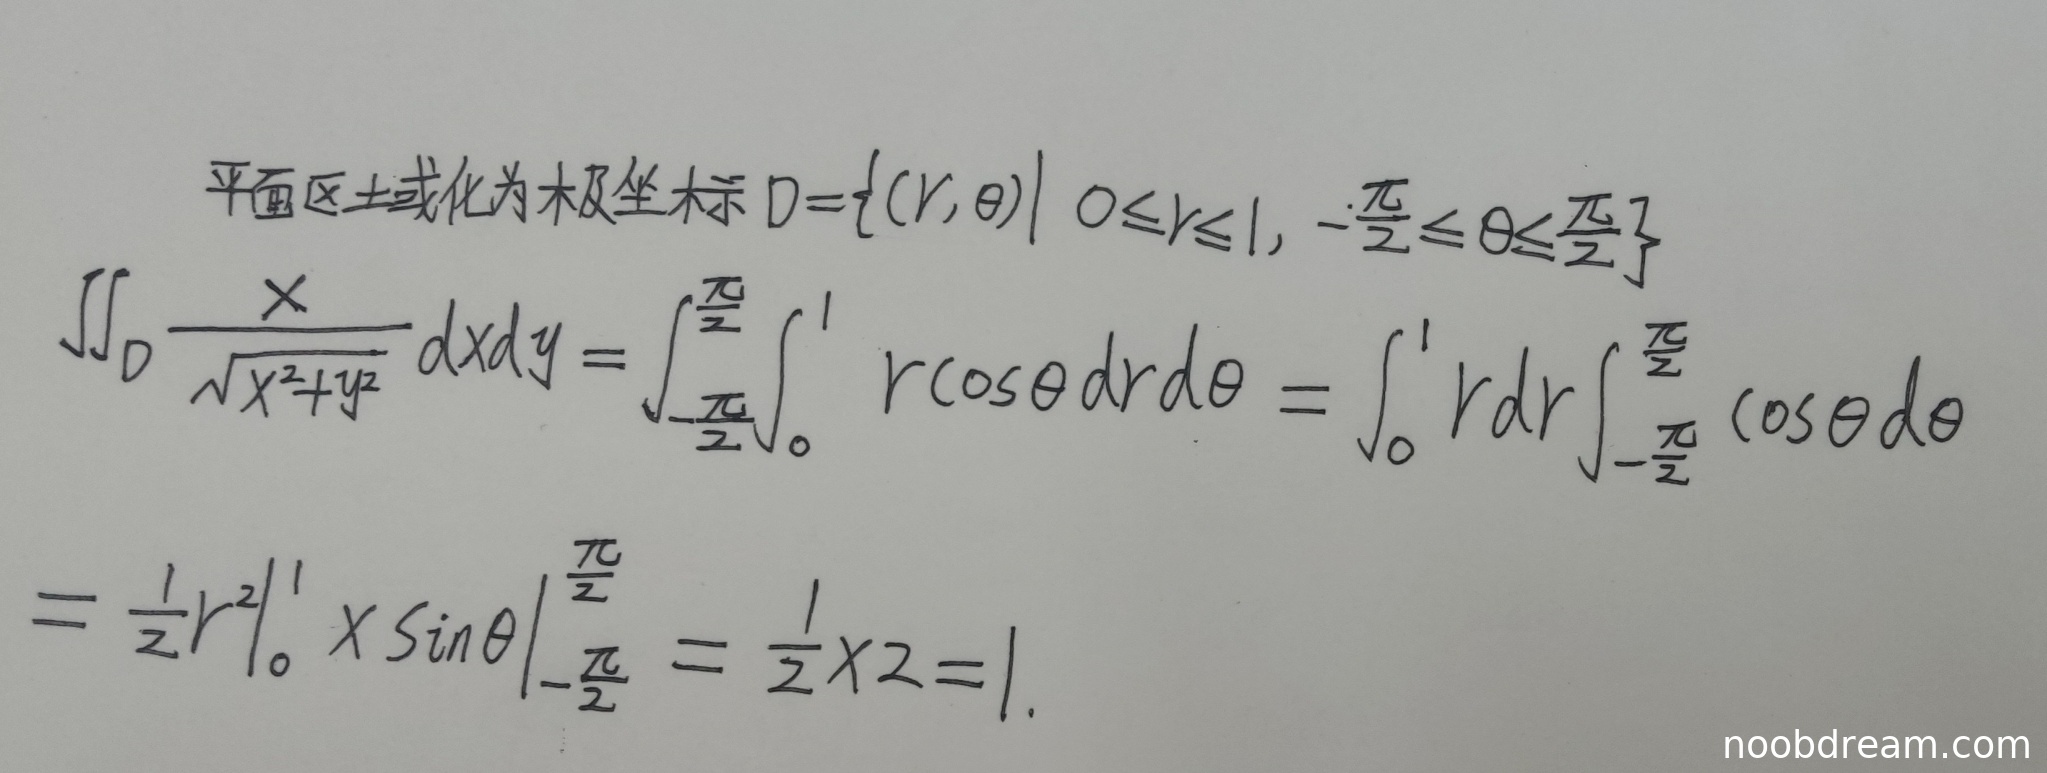 平面区域化为极坐标 D={(r,θ)| 0≤r≤1, -π/2≤θ≤π/2}
∬_D x/√(x²+y²) dxdy = ∫_{-π/2}^{π/2} ∫_0^1 rcosθdrdθ = ∫_0^1 rdr ∫_{-π/2}^{π/2} cosθdθ
= 1/2 r²|_0^1 × sinθ|_{-π/2}^{π/2} = 1/2 ×2=1.
noobdream.com